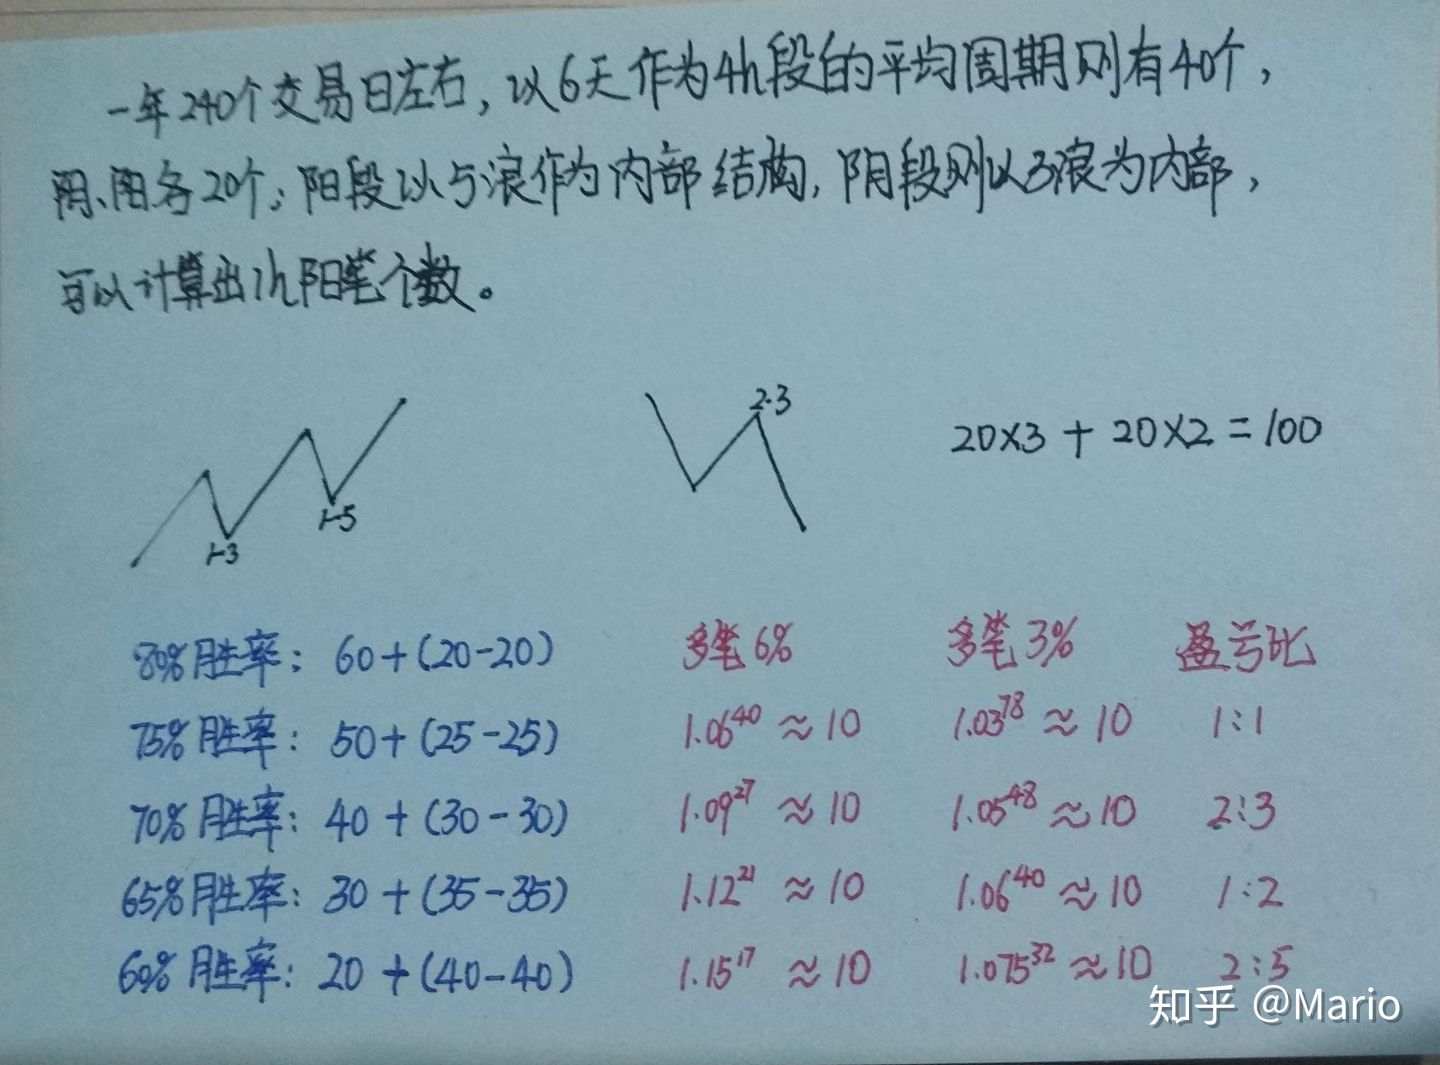 一年240个交易日左右，以6天作为4h段的平均周期则有40个，
阴、阳各20个；阳段以5浪作为内部结构，阴段则以3浪为内部，
可以计算出1h阳笔个数。
2.3
20×3 + 20×2 = 100
1-5
1-3
80%胜率： 60+(20-20) 多笔6% 多笔3% 盈亏比
75%胜率： 50+(25-25) 1.06⁴⁰ ≈ 10 1.03⁷⁸ ≈ 10 1:1
70%胜率： 40+(30-30) 1.09²⁷ ≈ 10 1.05⁴⁸ ≈ 10 2:3
65%胜率： 30+(35-35) 1.12²¹ ≈ 10 1.06⁴⁰ ≈ 10 1:2
60%胜率： 20+(40-40) 1.15¹⁷ ≈ 10 1.075³² ≈ 10 2:5
知乎 @Mario